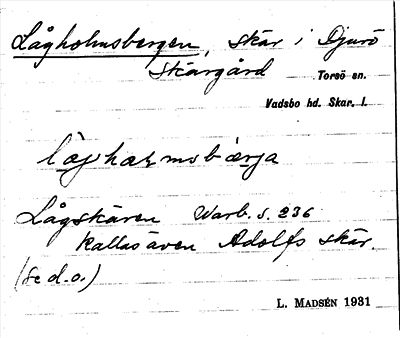 Lågholmsbergen, skär i Djurö
skärgård Torsö sn.
Vadsbo hd. Skar. l.
Lågskären Warb. s. 236
kallas även Adolfs skär.
(se d.o.)
L. MADSÉN 1931